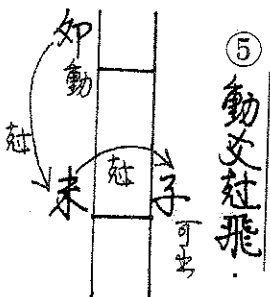 ⑤動爻尅飛.
卯動
尅
未
尅
子
可出